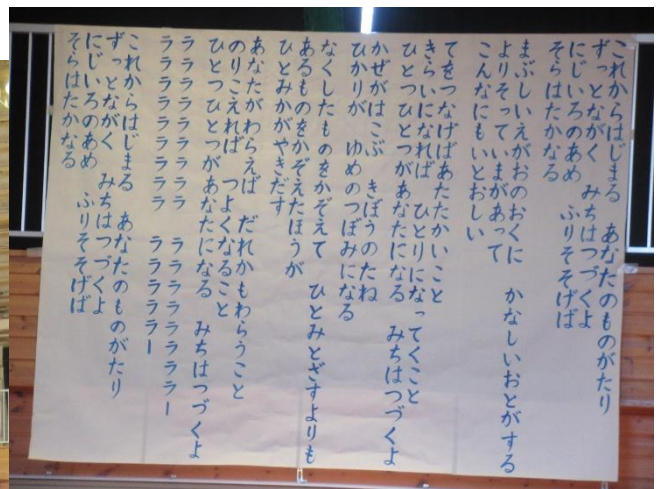 これからはじまる　あなたのものがたり
ずっとながく　みちはつづくよ
にじいろのあめ　ふりそそげば
そらはたかなる
まぶしいえがおのおくに　かなしいおとがする
よりそって　いまがあって
こんなにもいとおしい
てをつなげばあたたかいこと
きらいになれば　ひとりになってくこと
ひとつひとつがあなたになる　みちはつづくよ
かぜがはこぶ　きぼうのたね
ひかりが　ゆめのつぼみになる
なくしたものをかぞえて　ひとみとざすよりも
あるものをかぞえたほうが
ひとみかがやきだす
あなたがわらえば　だれかもわらうこと
のりこえれば　つよくなること
ひとつひとつがあなたになる　みちはつづくよ
ラララララララララ　ララララララララー
ラララララララララ　ラララララー
これからはじまる　あなたのものがたり
ずっとながく　みちはつづくよ
にじいろのあめ　ふりそそげば
そらはたかなる